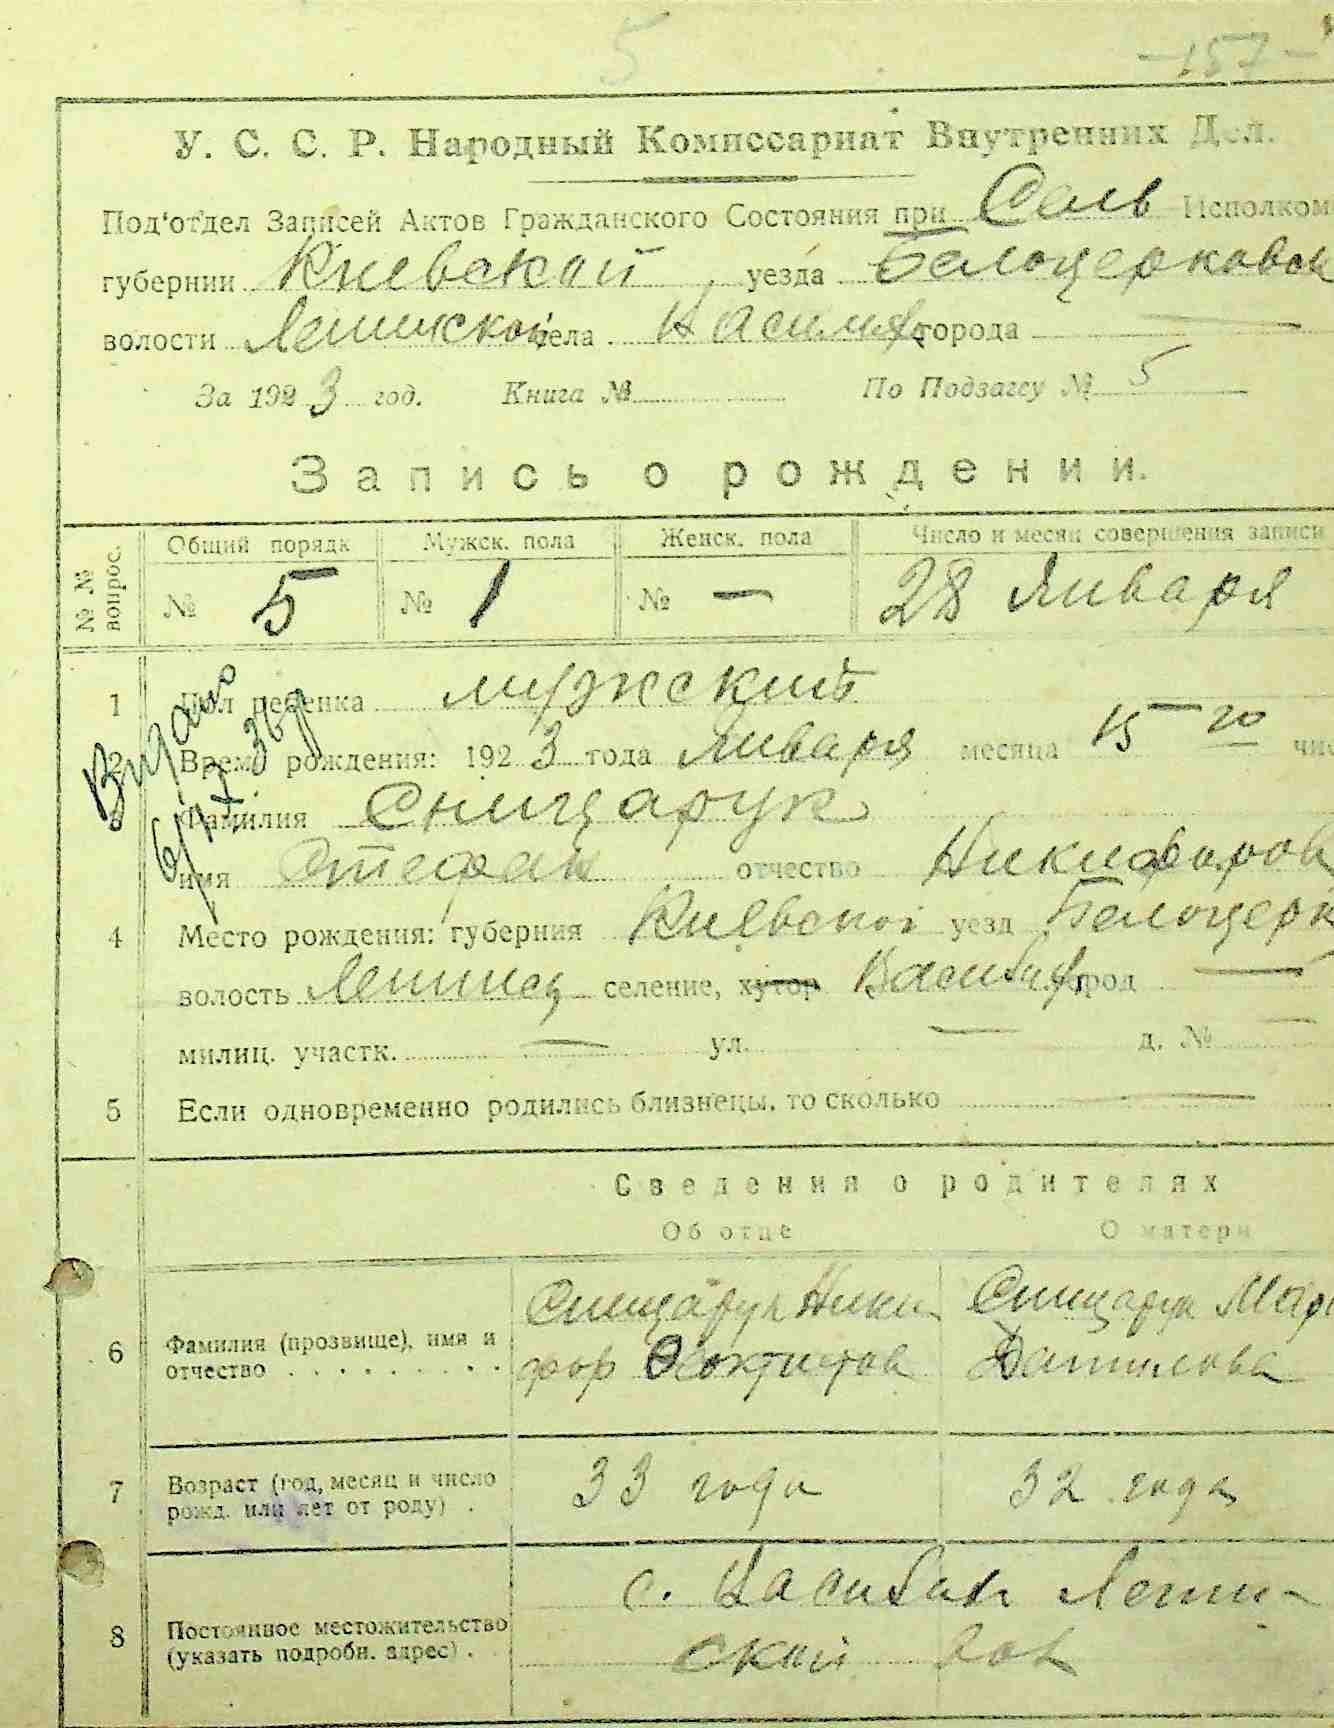 5
-157-
У. С. С. Р. Народный Комиссариат Внутренних Дел.
Под'отдел Записей Актов Гражданского Состояния при Сель Исполком
губернии Киевской, уезда Белоцерковск
волости села города —
За 1923 год. Книга № По Подзагсу № 5
Запись о рождении.
№№ вопрос.
Общий порядк Мужск. пола Женск. пола Число и месяц совершения записи
№ 5 № 1 № — 28 Января
1 Пол ребенка мужский
2 Время рождения: 1923 года Января месяца 15-го чис
3 Фамилия Снищарук
имя Стефан отчество Никифоров
4 Место рождения: губерния Киевской уезд Белоцерк
волость селение, хутор город —
милиц. участк. — ул. — д. № —
5 Если одновременно родились близнецы, то сколько —
Видано
Сведения о родителях
Об отце О матери
6 Фамилия (прозвище), имя и Снищарук Ники Снищарук Мар
отчество . . . . . . . . фор Феоктистов Данилова
7 Возраст (год, месяц и число 33 года 32 года
рожд. или лет от роду) .
8 Постоянное местожительство с.
(указать подробн. адрес) . ской вол